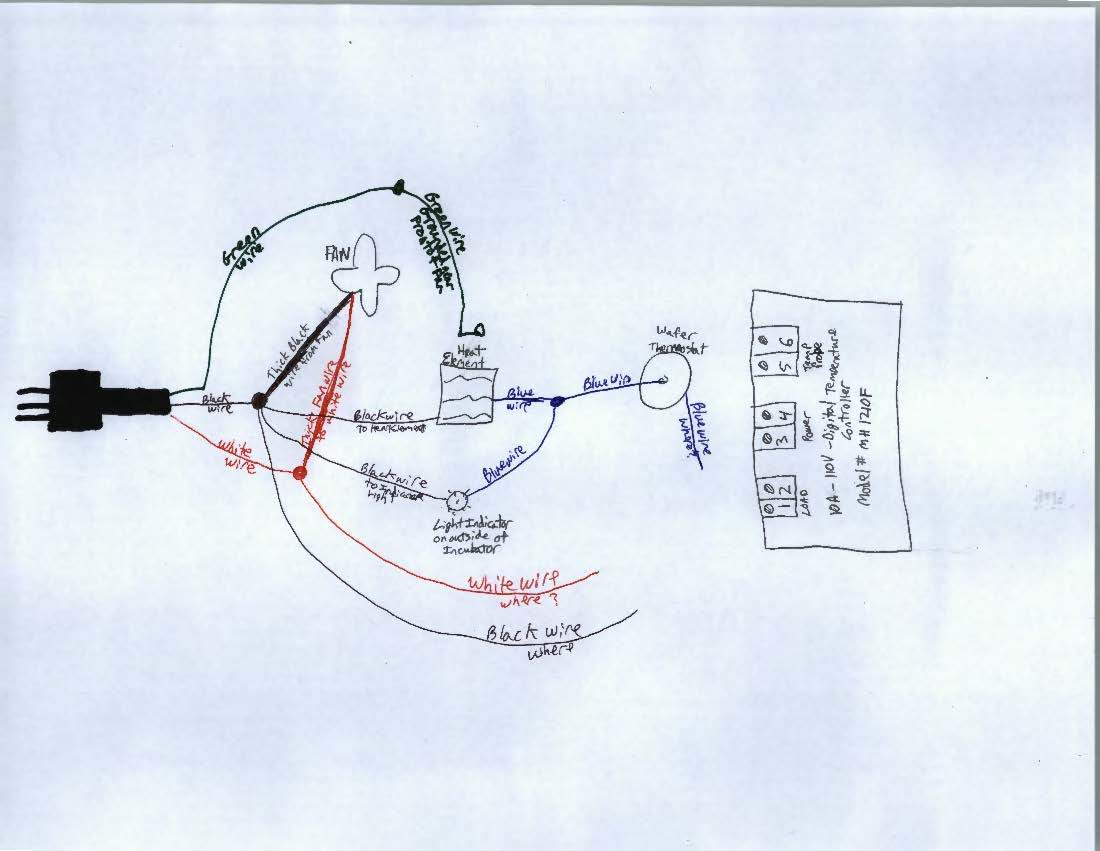 Green
wire
Green wire
FAN
Thick Black
wire from Fan
Thick Fan wire
to white wire
Black
wire
White
wire
Heat
Element
Black wire
to heat element
Blue
wire
Blue wire
Wafer
Thermostat
Blue wire
where?
Blue wire
Black wire
to Indicator
Light
Light Indicator
on outside of
Incubator
White wire
where?
Black wire
where
1 2
LOAD
3 4
Power
5 6
Temp
Probe
10A - 110V - Digital Temperature
Controller
Model # MH1210F